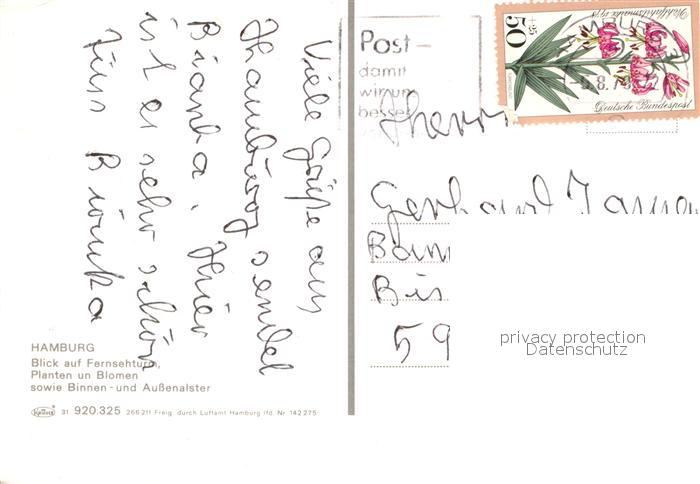 Viele Grüße aus
Hamburg sendet
Bianka. Hier
ist es sehr schön
Tüss Bianka
HAMBURG
Blick auf Fernsehturm,
Planten un Blomen
sowie Binnen- und Außenalster
Krüger 31 920.325 266 211 Freig. durch Luftamt Hamburg lfd. Nr 142 275
Post -
damit
wir uns
besser
50 +25
Wohlfahrtsmarke 1978
Deutsche Bundespost
-8.7
Herrn
Gerhard
Bis
59
privacy protection
Datenschutz